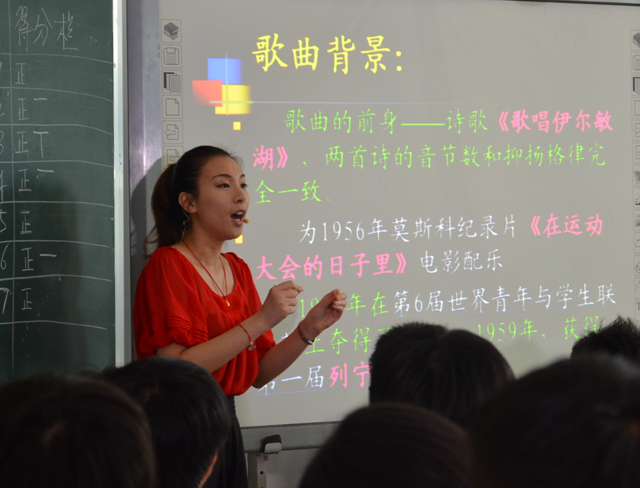 得分栏
正
正一
正丅
正一
正
6 正一
7 正
歌曲背景：
歌曲的前身——诗歌《歌唱伊尔敏
湖》，两首诗的音节数和抑扬格律完
全一致。
为1956年莫斯科纪录片《在运动
大会的日子里》电影配乐
年在第6届世界青年与学生联
上夺得 1959年，获得
第一届列宁